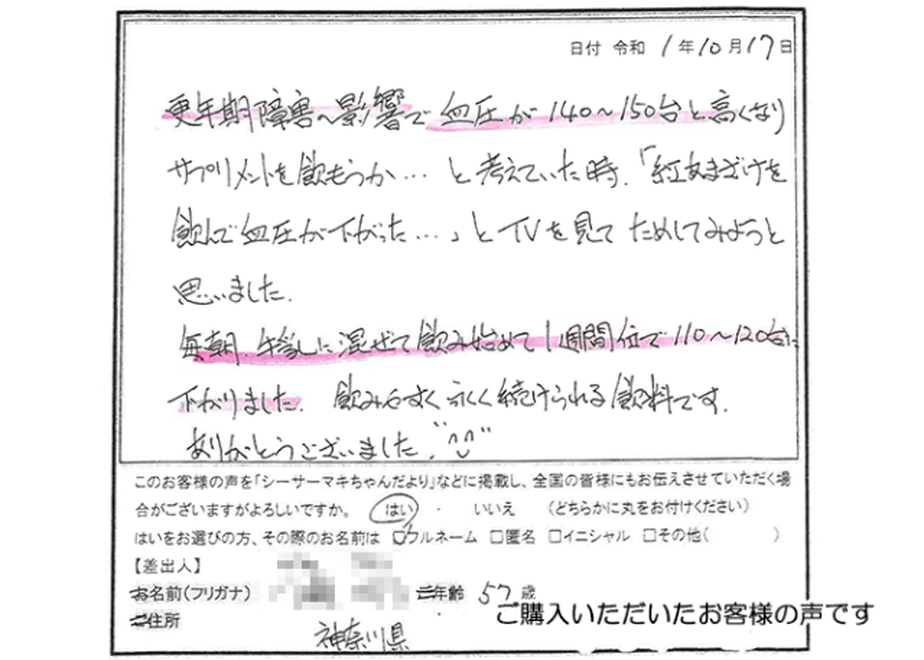 日付 令和 1年10月17日
更年期障害の影響で血圧が140～150台と高くなり
サプリメントを飲もうか…と考えていた時、「紅あまざけを
飲んで血圧が下がった…」とTVを見てためしてみようと
思いました。
毎朝、牛乳に混ぜて飲み始めて1週間位で110～120台に
下がりました。飲みやすく永く続けられる飲料です。
ありがとうございました。
このお客様の声を「シーサーマキちゃんだより」などに掲載し、全国の皆様にもお伝えさせていただく場
合がございますがよろしいですか。 はい ・ いいえ （どちらかに丸をお付けください）
はいをお選びの方、その際のお名前は □フルネーム □匿名 □イニシャル □その他（ ）
【差出人】
お名前（フリガナ） 年齢 57歳
ご購入いただいたお客様の声です
ご住所
神奈川県